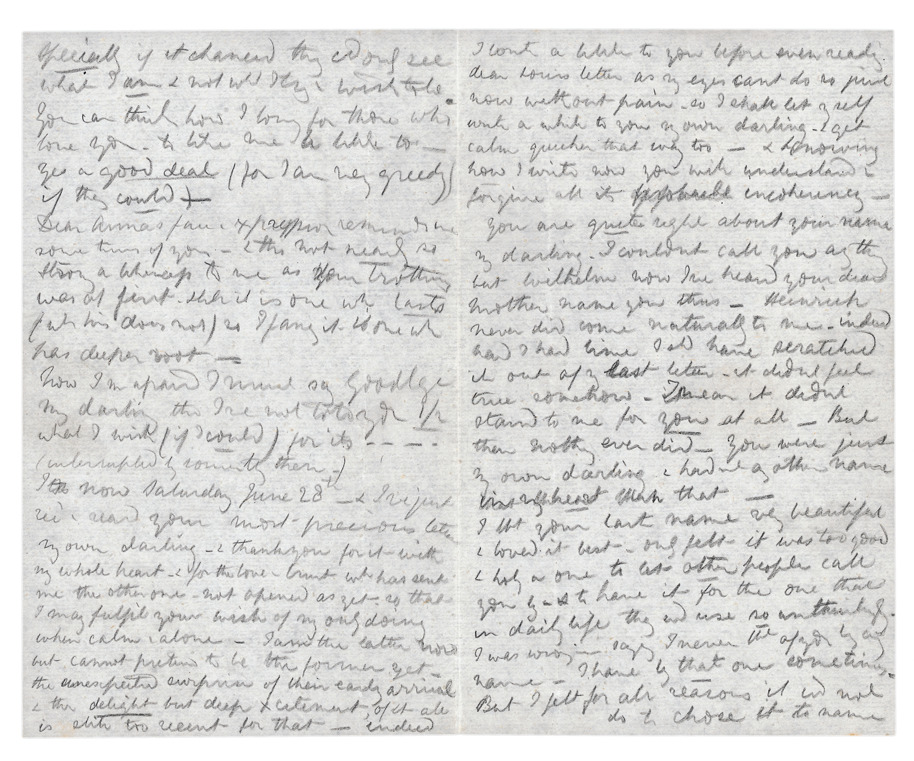 specially if it chanced they cd only see
what I am & not wh I try & wish to be
You can think how I long for those who
love you - to like me a little too —
yes a good deal (for I am very greedy)
if they could —
Dear Anna's face & expression reminds me
some times of you - & this not nearly so
strong a likeness to me as your
was at first. still it is one wh lasts
(wh his does not) so I fancy it is one wh
has deeper root —
Now I'm afraid I must say Goodbye
my darling tho I've not told you 1/2
what I wish (if I could) for its - - - -
(interrupted by some to them -)
It now Saturday June 28th — & I've just
read your most precious letter
my own darling - & thank you for it with
my whole heart - & for the love wh has sent
me the other one - not opened as yet - so that
I may fulfil your wish of my only doing
when calm & alone - I am the latter now
but cannot pretend to be the former yet -
the unexpected surprise of their early arrival
& the delight but deep excitement of it all
is still too recent for that — indeed
I want a little to you before even reading
dear letter as my eyes cant do so just
now without pain - so I shall let myself
write a while to you my own darling - & get
calm quicker that way too — & knowing
how I write now you will understand &
forgive all its incoherency —
You are quite right about your name
my darling. I couldnt call you anything
but Wilhelm now I've heard your dear
mother name you thus — Heinrich
never did come naturally to me - indeed
had I had time I shd have scratched
it out of my last letter - it didnt feel
true somehow - I mean it didnt
stand to me for you at all — But
then nothing ever did — You were just
my own darling & had no other name
than that —
I tht your last name very beautiful
& loved it best - only felt it was too good
& holy a one to let other people call
you by & to have it for the one that
in daily life they wd use so unthinkingly.
I was wrong — I never of you by any
name - I have by that one sometimes.
But I felt for all reasons it wd not
do to chose it to name